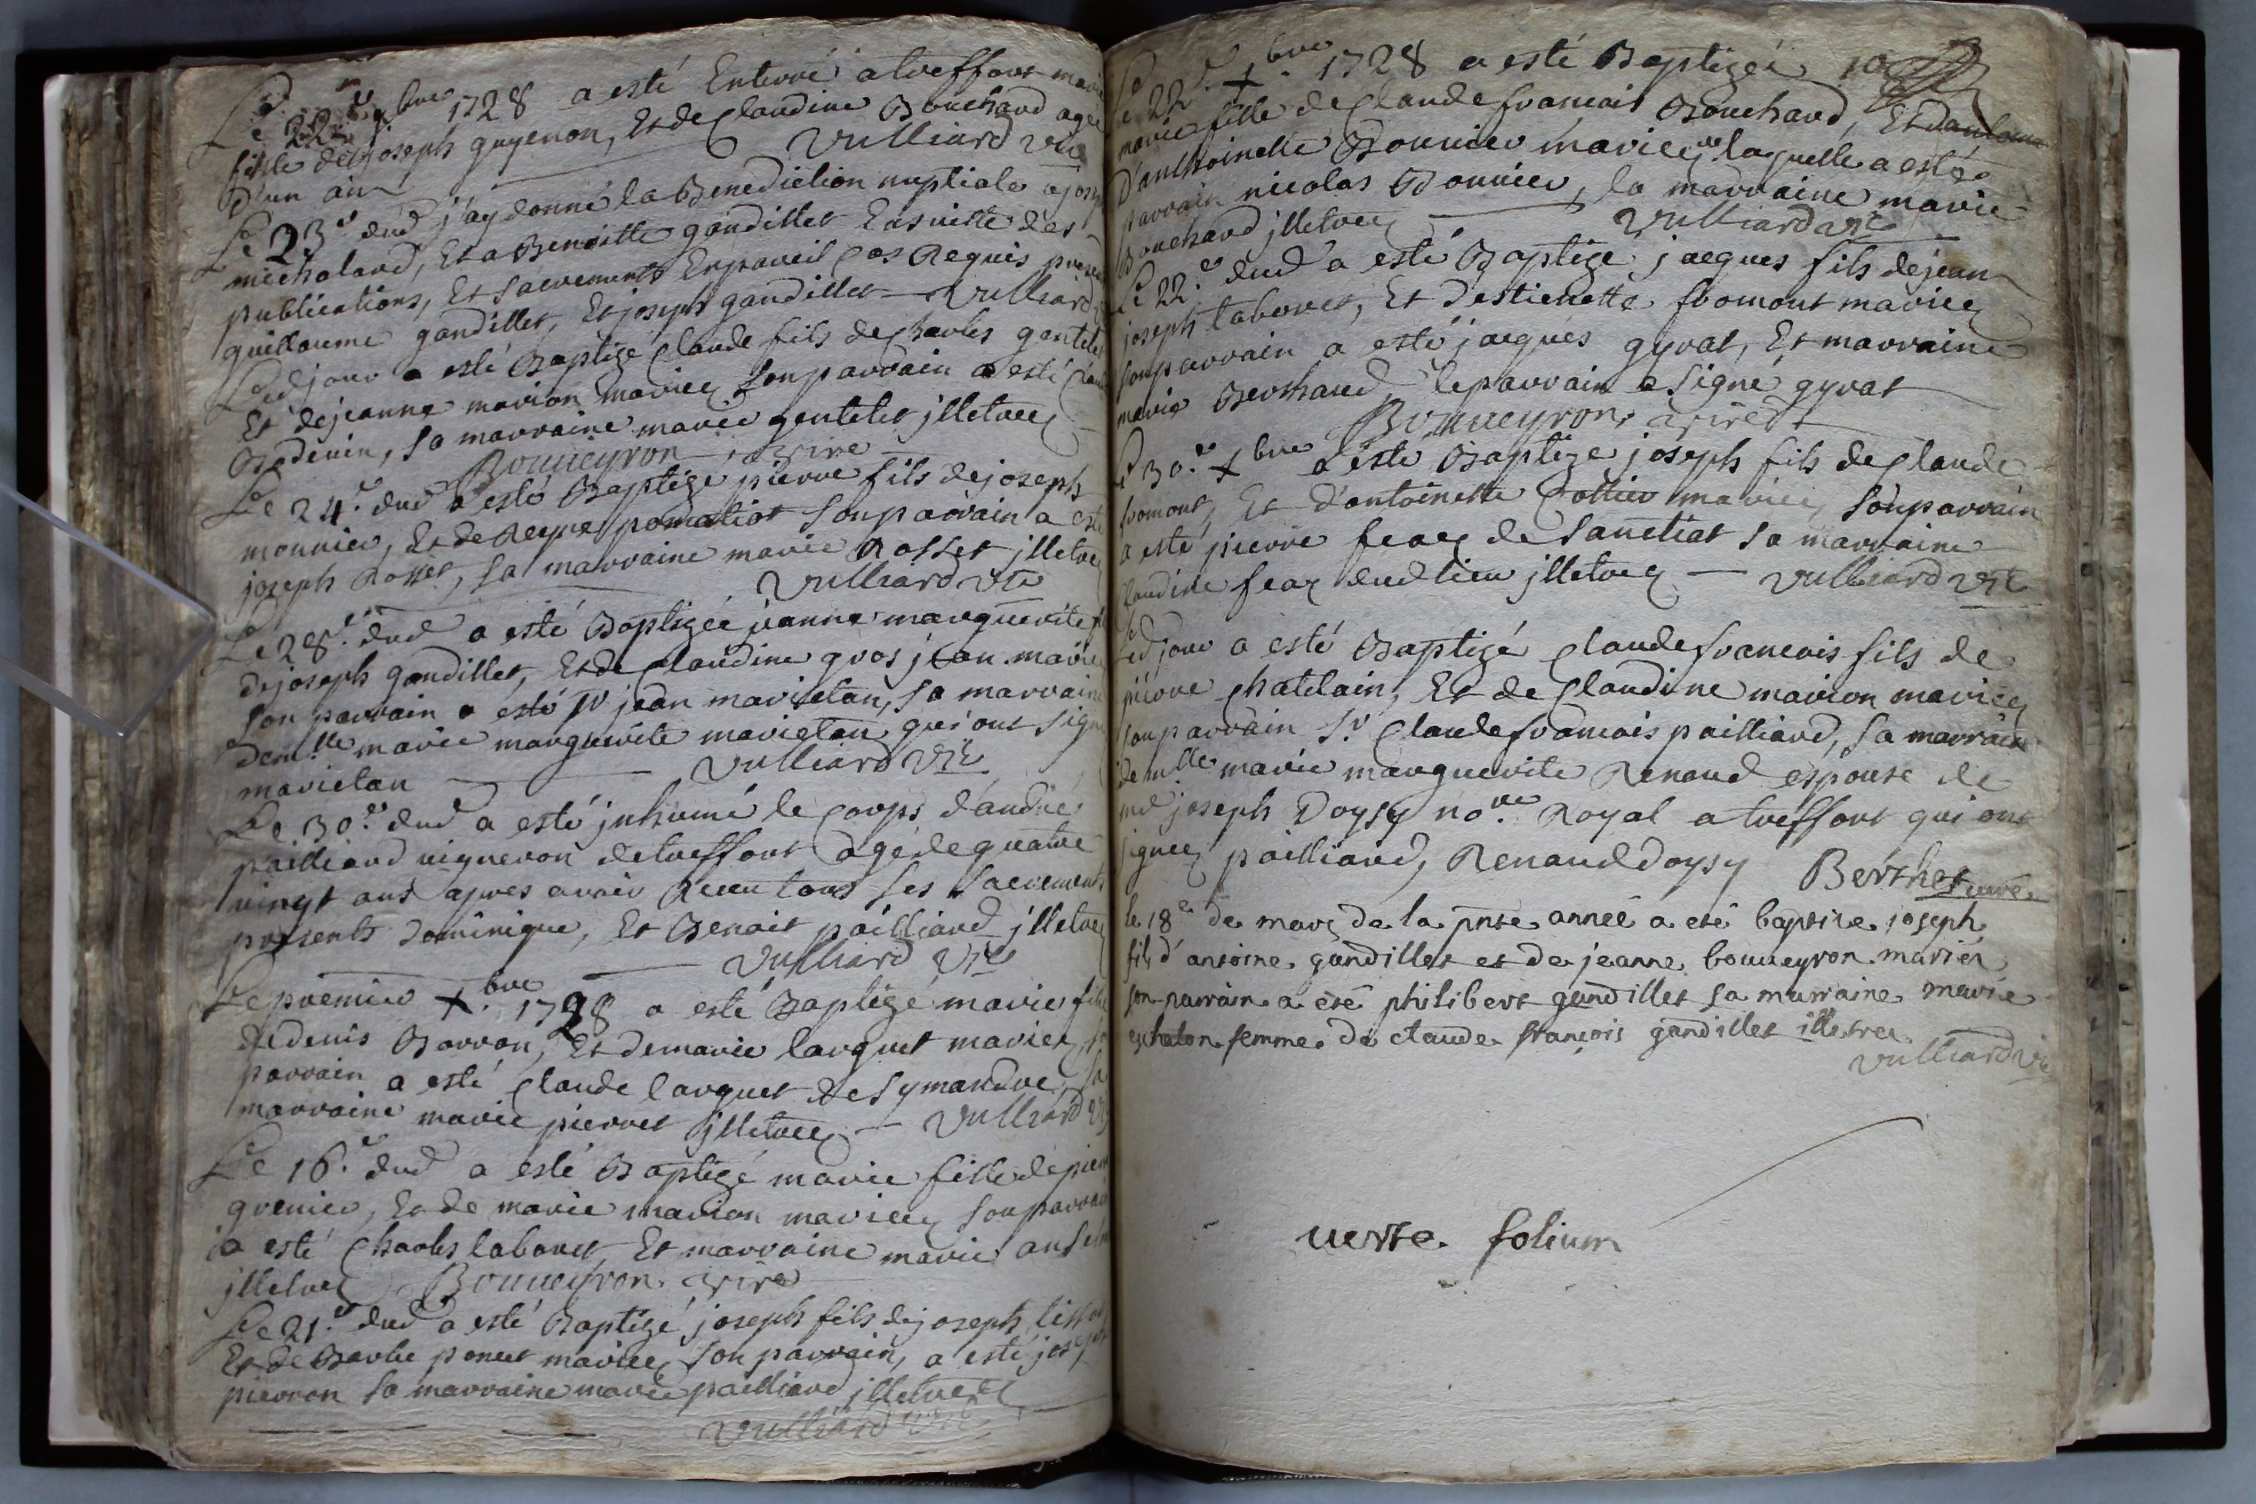 Le 22.e 9bre 1728 a esté Enterré a treffort marie
fille de joseph guyenon, Et de Claudine Bouchard agée
d'un an Vulliard vic
Le 23.e dud j'ay donné la Benediction nuptiale a joseph
michaland, Et a Benoitte gandillet Ensuitte des
publications, Et sacrements En pareil Cas Requis presents
guillaume gandillet, Et joseph gandillet Vulliard
Led jour a esté Baptizé Claude fils de Charles gentelet
Et de jeanne marion mariez son parrain a esté Claude
sa marraine marie gentelet jlletrez
Bouueyron vire
Le 24.e dud a esté Baptizé pierre fils de joseph
monnier, Et de Reyne pomatiot son parrain a esté
joseph Rosset, sa marraine marie Rosset jlletrez
Vulliard vic
Le 28.e dud a esté Baptizée jeanne marguerite
de joseph gandillet, Et de Claudine gros jean mariez
son parrain a esté Sr jean marietan, sa marraine
demlle marie marguerite marietan qui ont signé
marietan Vulliard vic
Le 30.e dud a esté jnhumé le Corps d'andré
pailliard uigneron de treffort agé de quatre
uingt ans apres avoir Receu tous ses sacrements
presents Dominique, Et Benoit pailliard jlletrez
Vulliard vic
Le premier Xbre 1728 a esté Baptizé marie fille
de denis Barron, Et de marie larguet mariez
parrain a esté Claude larguet de symandre, sa
marraine marie pierret jlletrez Vulliard vic
Le 16.e dud a esté Baptizé marie fille de pierre
grenier, Et de marie marion mariez son parrain
a esté Charles laboret, Et marraine marie
jlletrez Bouueyron vire
Le 21.e dud a esté Baptizé joseph fils de joseph
Et de Barbe ponet mariez son parrain, a esté joseph
pierron sa marraine marie pailliard jlletrez
Vulliard vic
Le 22.e Xbre 1728 a esté Baptizée
marie fille de Claude francois Bouchard, Et
D'anthoinette Bonnier mariez laquelle a esté
parrain nicolas Bonnier, la marraine marie
Bouchard jlletrez Vulliard vic
Le 22.e dud a esté Baptize jacques fils de jean
joseph laboret, Et d'estiennette fromont mariez
son parrain a esté jacques gyrat, Et marraine
marie Berthaud le parrain a signé gyrat
Bouueyron vire
Le 30.e Xbre a esté Baptize joseph fils de Claude
fromont, Et d'antoinette Cottier mariez, son parrain
a esté pierre feaz de sanctiat sa marraine
Claudine feaz dud lieu jlletrez Vulliard vic
Led jour a esté Baptizé Claude francois fils de
pierre Chatelain, Et de Claudine marion mariez
son parrain Sr Claude francois pailliard, sa marraine
demlle marie marguerite Renaud espouse de
me joseph Doysy nore Royal a treffort qui ont
signez pailliard, Renaud doysy Berthet curé
le 18e de mars de la pnte anneé a eté baptize joseph
fils d'antoine gandillet et de jeanne bouueyron mariés
son parrain a eté philibert gandillet sa marraine marie
echalon femme de claude françois gandillet illetrez
vulliard vic
verte folium